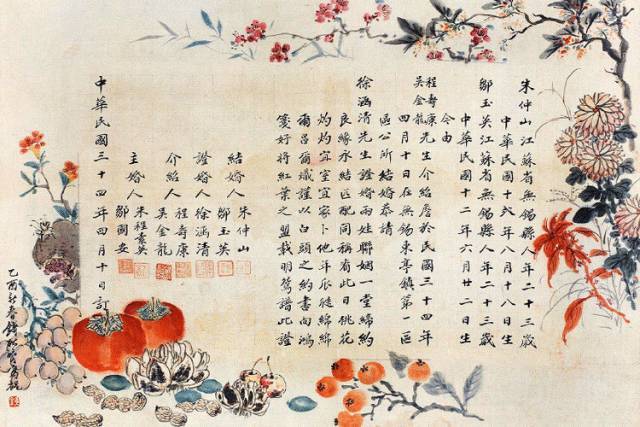 朱仲山江蘇省無錫縣人年二十三歲
中華民國十二年八月十八日生
鄒玉英江蘇省無錫縣人年二十三歲
中華民國十二年六月廿二日生
今由
程壽康
吳金龍
先生介紹詹於民國三十四年
四月十日在無錫東亭鎮第一區
區公所結婚恭請
徐涵清先生證婚兩姓聯姻一堂締約
良緣永結匹配同稱看此日桃花
灼灼宜室宜家卜他年瓜瓞綿綿
爾昌爾熾謹以白頭之約書向鴻
箋好將紅葉之盟載明鴛譜此證
結婚人
朱仲山
鄒玉英
證婚人
徐涵清
介紹人
程壽康
吳金龍
主婚人
鄒國安
中華民國三十四年四月十日訂
乙酉新春